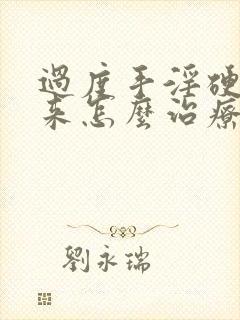 過度手淫硬
來怎麼治療
劉永瑞